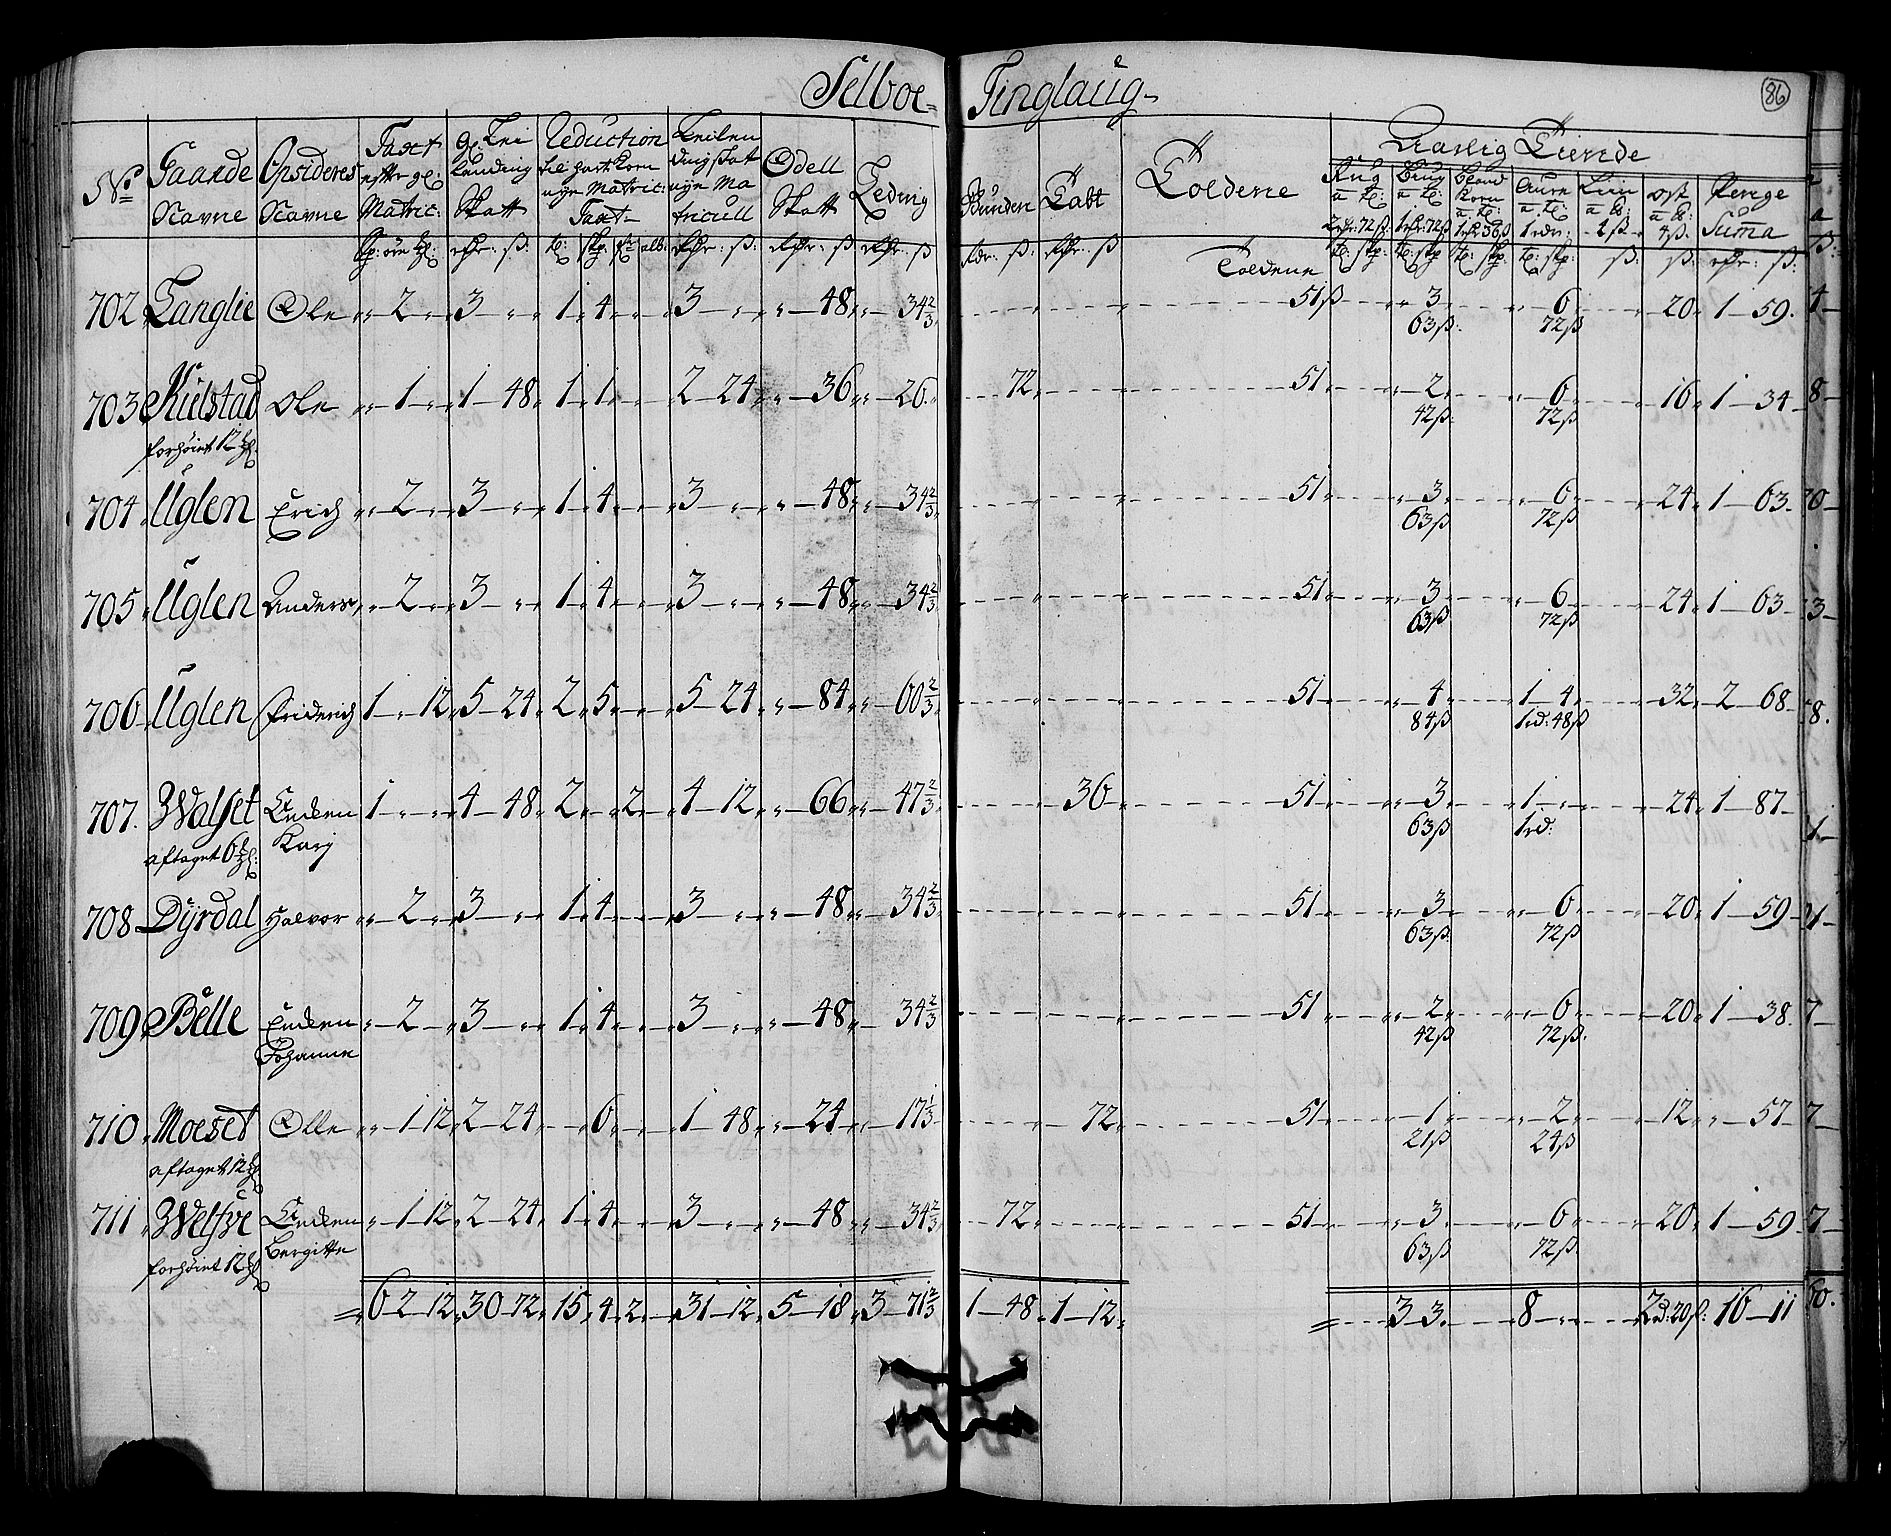 Selboe= Tinglaug
86
No Gaarde Navne Opsideres Navne Taxt efter gl: Matric: gl: Lei Landing Skatt Reduction til hartkorn nye Matric: Taxt Leilen ding skat nye Ma tricull Odell Skatt Leding Vunden Tabt Toldene Aarlig Tiende
Rug Byg Bland Korn Aure Liin Ost Penge Suma
702 Langlie Ole 2 3 1 4 3 48 34 2/3 51ß 3 6 20 1 59
63ß 72ß
703 Kulstad Ole 1 1 48 1 1 2 24 36 26 72 51 2 6 16 1 34
forhøiet 12 42ß 72ß
704 Uglen Erich 2 3 1 4 3 48 34 2/3 51 3 6 24 1 63
63ß 72ß
705 Uglen Anders 2 3 1 4 3 48 34 2/3 51 3 6 24 1 63
63ß 72ß
706 Uglen Friderich 1 12 5 24 2 5 5 24 84 60 2/3 51 4 1 4 32 2 68
84ß 1rd: 48ß
707 Walset Enken Karj 1 4 48 2 2 4 12 66 47 2/3 36 51 3 1 24 1 87
aftaget 6 63ß 1rd:
708 Dyrdal Halvor 2 3 1 4 3 48 34 2/3 51 3 6 20 1 59
63ß 72ß
709 Belle Enken Johanne 2 3 1 4 3 48 34 2/3 51 2 6 20 1 38
42ß 72ß
710 Moeset Olle 1 12 2 24 6 1 48 24 17 1/3 72 51 1 2 12 57
aftaget 12 21ß 24ß
711 Welsve Enken Bergitte 1 12 2 24 1 4 3 48 34 2/3 72 51 3 6 20 1 59
forhøiet 12 63ß 72ß
= 6 2 12 30 72 15 4 2 31 12 5 18 3 71 2/3 1 48 1 12 = 3 3 8 2rd: 20ß: 16 11